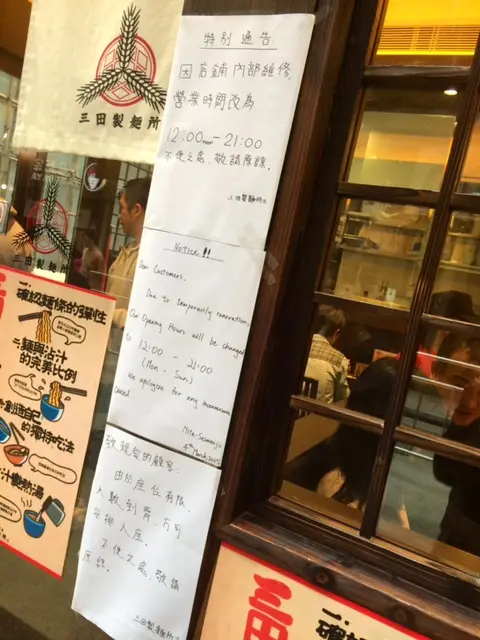 三田製麵所
特別通告
因店鋪內部維修,
營業時間改為
12:00noon-21:00
不便之處,敬請原諒。
三田製麵所
Notice!!
Dear Customers,
Due to temporarily renovation,
Our Opening Hours will be changed
to 12:00 - 21:00
(Mon - Sun)
We apologize for any inconvenience
caused.
Mita-Seimenjo
4th March
致親愛的顧客:
由於座位有限,
人數到齊,方可
安排入座。
不便之處,敬請
原諒。
三田製麵所
確認麵條的彈性
麵與沾汁
的完美比例
創造自己
的獨特吃法
三田